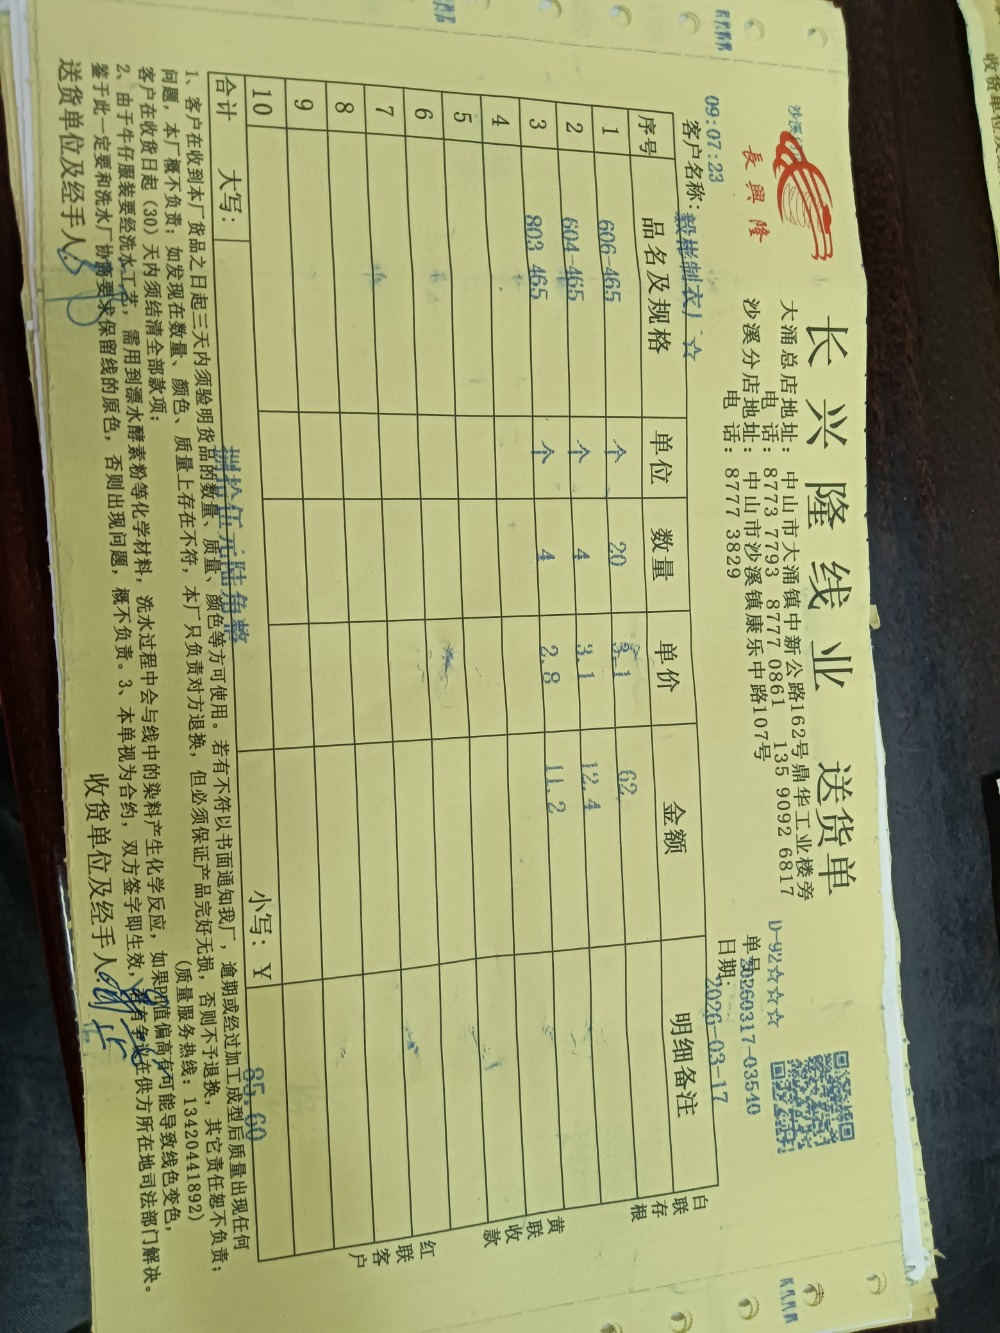 長興隆
长兴隆线业 送货单
大涌总店地址：中山市大涌镇中新公路162号鼎华工业楼旁
电 话：8773 7793 8777 0861 135 9092 6817
沙溪分店地址：中山市沙溪镇康乐中路107号
电 话：8777 3829
D-92☆☆☆
单号 20260317-03540
日期：2026-03-17
09:07:23
客户名称：毅彬制衣厂☆
序号 品名及规格 单位 数量 单价 金额 明细备注
1 606-465 个 20 3.1 62
2 604-465 个 4 3.1 12.4
3 803-465 个 4 2.8 11.2
4
5
6
7
8
9
10
合计 大写： 捌拾伍元陆角整 小写：￥ 85.60
白联存根
黄联收款
红联客户
1、客户在收到本厂货品之日起三天内须验明货品的数量、质量、颜色等方可使用。若有不符以书面通知我厂，逾期或经过加工成型后质量出现任何
问题，本厂概不负责；如发现在数量、颜色、质量上存在不符，本厂只负责对方退换，但必须保证产品完好无损，否则不予退换，其它责任恕不负责；
客户在收货日起（30）天内须结清全部款项； (质量服务热线：13420441892)
2、由于牛仔服装要经洗水工艺，需用到漂水酵素粉等化学材料，洗水过程中会与线中的染料产生化学反应，如果PH值偏高有可能导致线色变色，
鉴于此一定要和洗水厂协商要求保留线的原色，否则出现问题，概不负责。3、本单视为合约，双方签字即生效，若有争议在供方所在地司法部门解决。
送货单位及经手人 收货单位及经手人